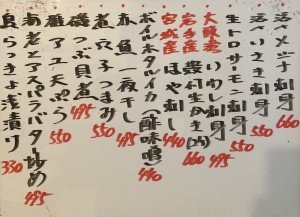 活〆メジナ刺身 660
活べりさき刺身 550
生トロサーモン刺身 550
大阪産 いわし刺身 495
岩手産 殻付生かき(内) 660
宮城産 ほや刺し 440
ボイルホタルイカ(酢味噌) 440
赤魚一夜干し 495
煮穴子つまみ 550
磯つぶ貝煮 495
稚アユ天ぷら 550
あさりとアスパラバター炒め 495
島らっきょ浅漬け 330